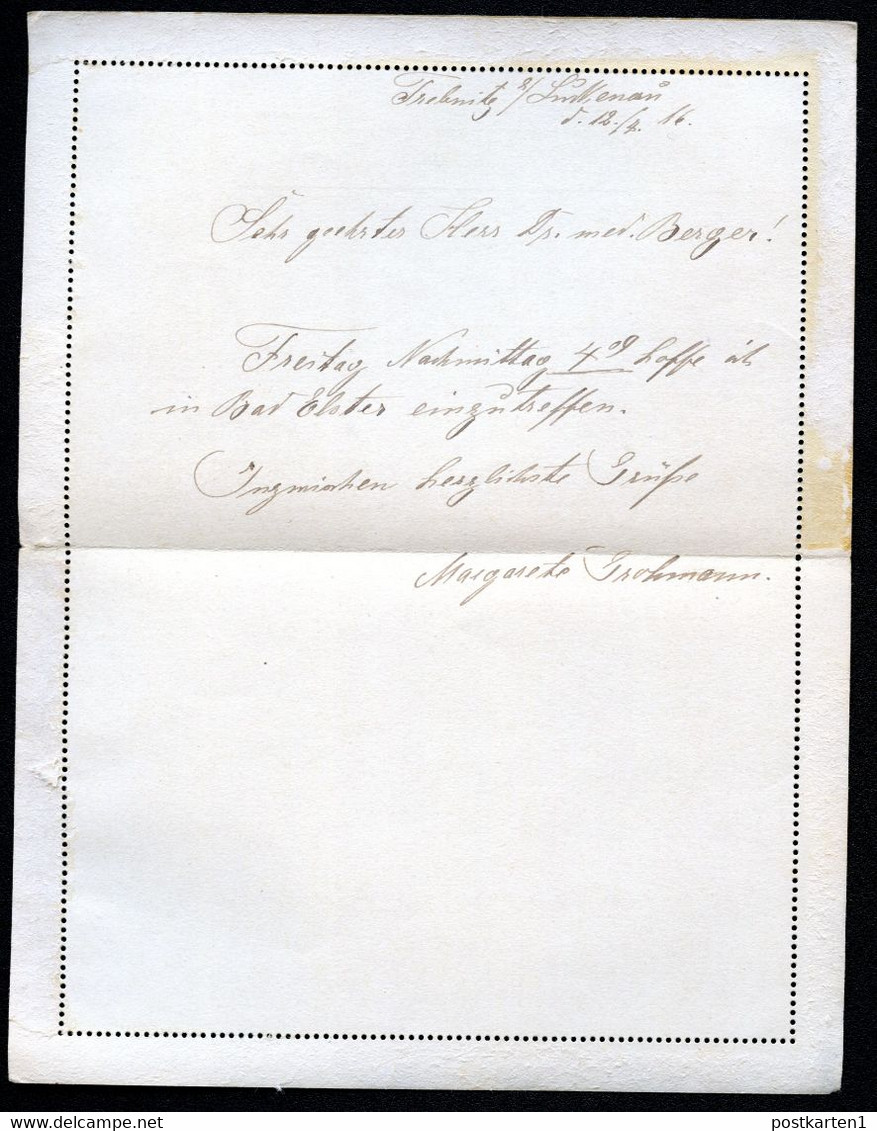 Trebnitz b/Luckenau
d. 12./7. 16.
Sehr geehrter Herr Dr. med. Berger!
Freitag Nachmittag 4⁰⁹ hoffe ich
in Bad Elster einzutreffen.
Inzwischen herzlichste Grüße
Margarete Grohmann.
www.delcampe.net
postkarten1